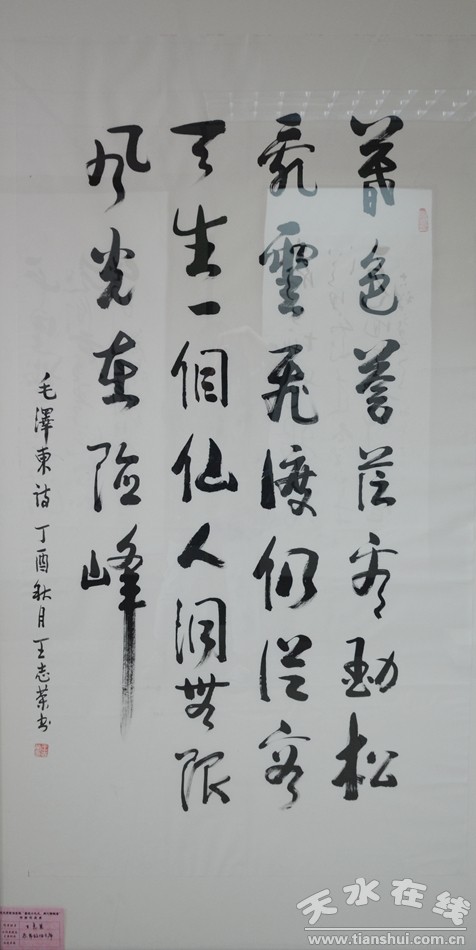 暮色蒼茫看勁松
亂雲飛渡仍從容
天生一個仙人洞無限
風光在險峰
毛澤東詩 丁酉秋月 王志荣书
天水在线
www.tianshui.com.cn